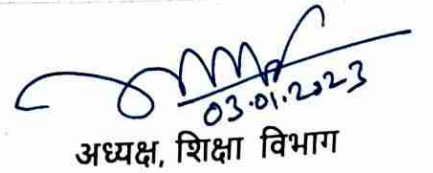 03.01.2023
अध्यक्ष, शिक्षा विभाग